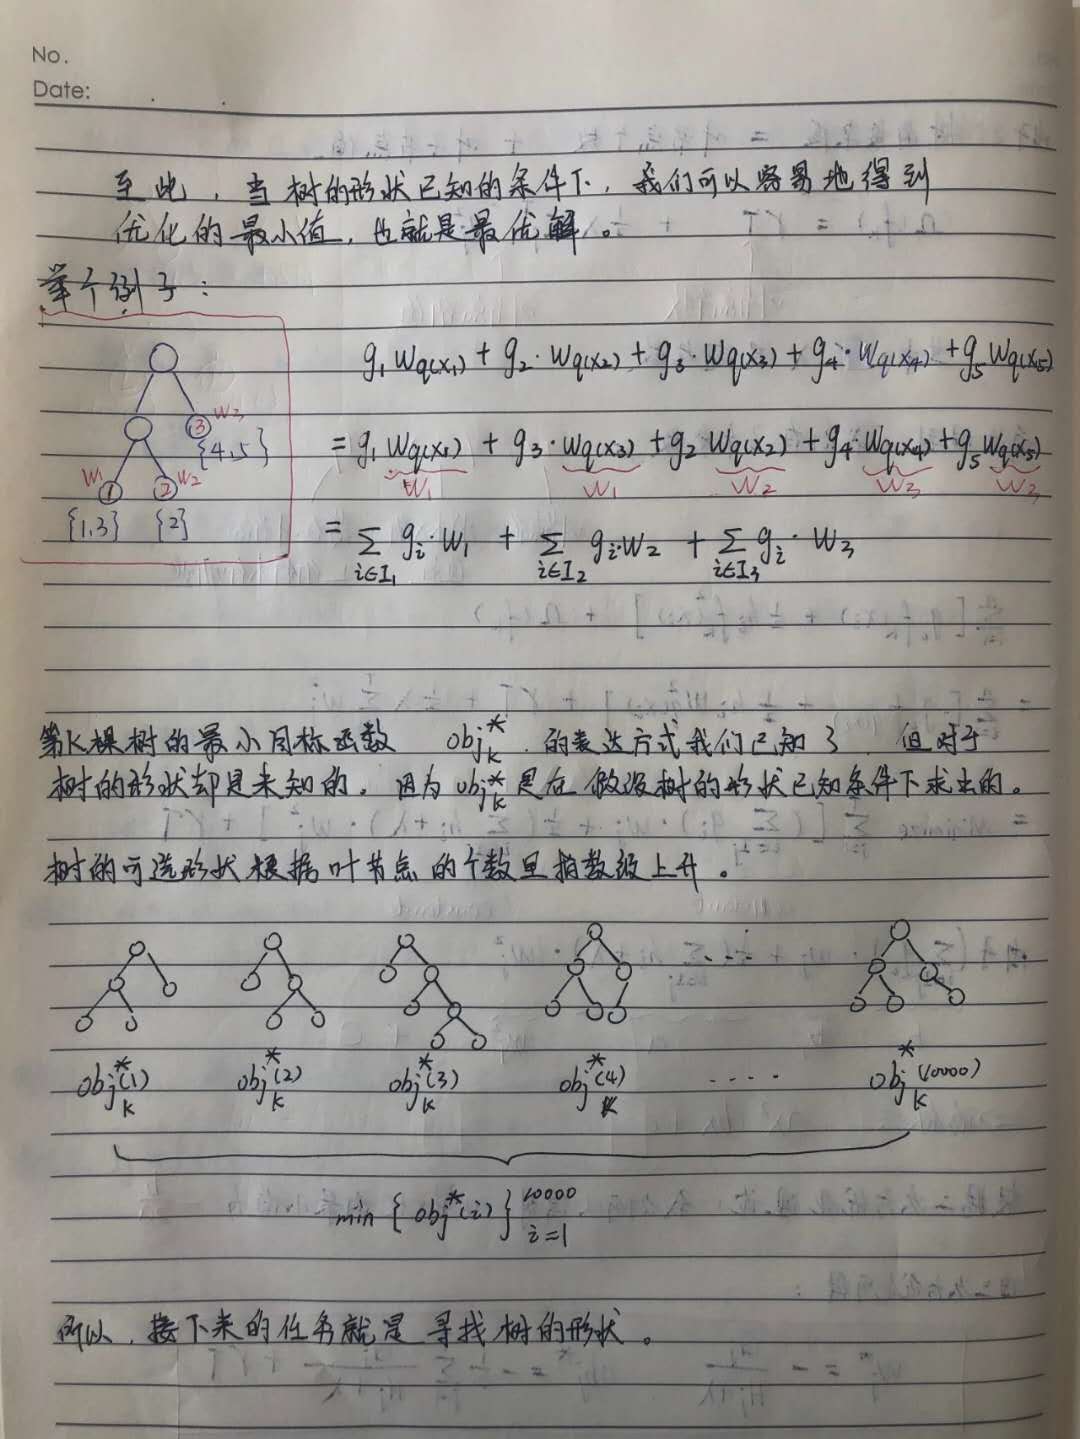 No.
Date:
至此，当树的形状已知的条件下，我们可以容易地得到
优化的最小值，也就是最优解。
举个例子：
g₁ w_q(x₁) + g₂·w_q(x₂) + g₃·w_q(x₃) + g₄·w_q(x₄) + g₅ w_q(x₅)
③ w₃
{4,5}
= g₁ w_q(x₁) + g₃·w_q(x₃) + g₂ w_q(x₂) + g₄·w_q(x₄) + g₅ w_q(x₅)
w₁ w₁ w₂ w₃ w₃
w₁ ① ② w₂
{1,3} {2}
= Σ_{i∈I₁} g_i·w₁ + Σ_{i∈I₂} g_i·w₂ + Σ_{i∈I₃} g_i·w₃
第K棵树的最小目标函数 obj*_K 的表达方式我们已知了，但对于
树的形状却是未知的。因为 obj*_K 是在假设树的形状已知条件下求出的。
树的可选形状根据叶节点的个数呈指数级上升。
obj*_K(1) obj*_K(2) obj*_K(3) obj*_K(4) ···· obj*_K(10000)
min {obj*(i)}_{i=1}^{10000}
所以，接下来的任务就是寻找树的形状。